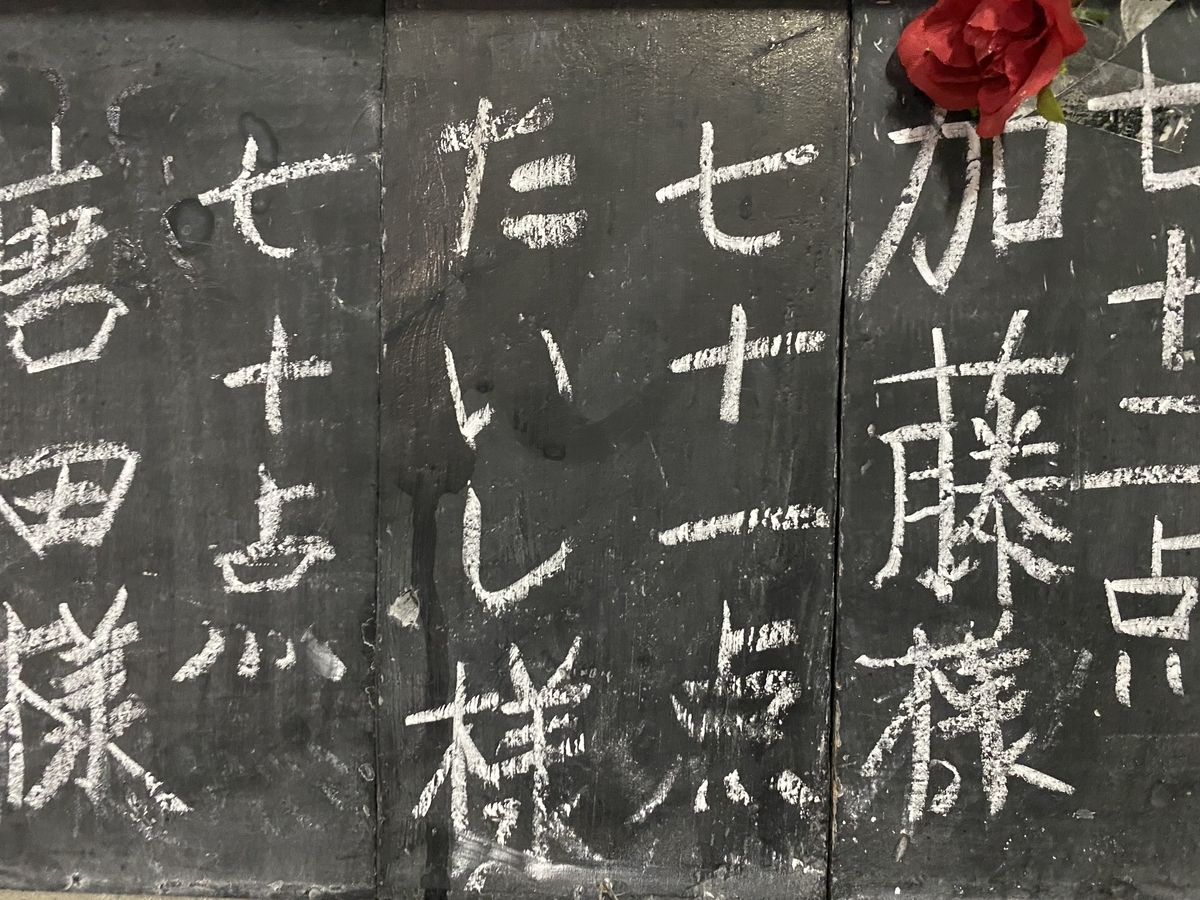 七十二点
加藤様
七十一点
たいし様
七十点
田様